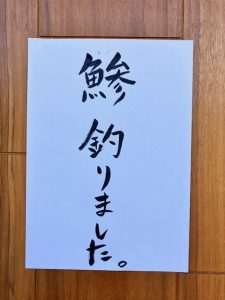 鯵釣りました。